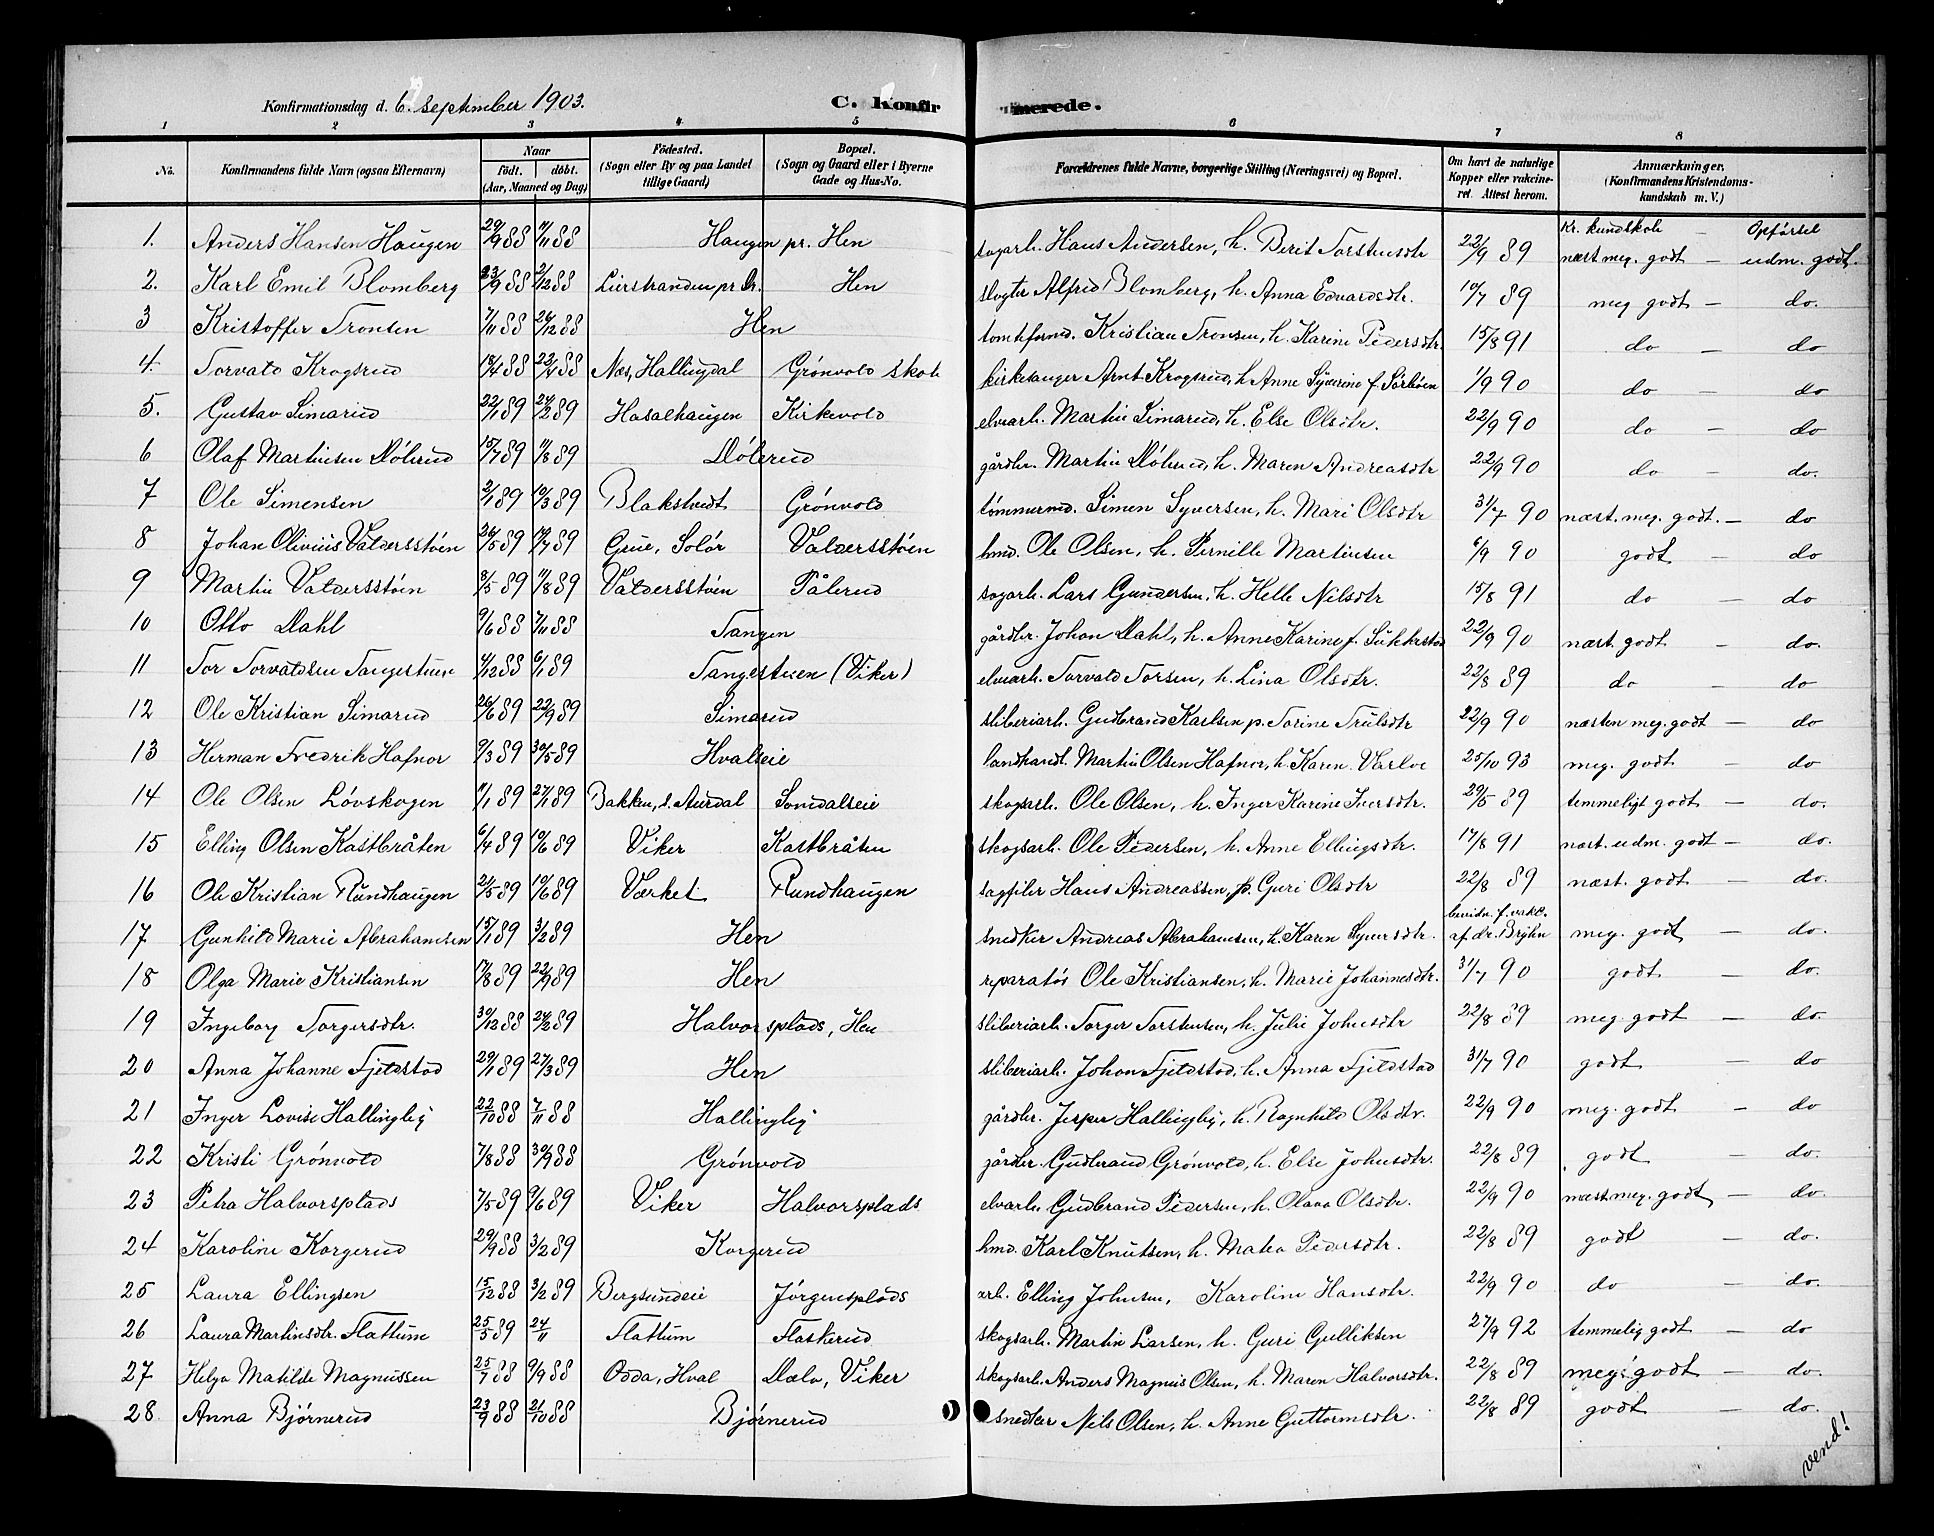 Konfirmationsdag d. 6. september 1903. C. Konfirmerede.
1 2 3 4 5 6 7 8
No. Konfirmandens fulde Navn (ogsaa Efternavn) Naar födt. döbt. (Aar, Maaned og Dag) Födested. (Sogn eller By og paa Landet tillige Gaard) Bopæl. (Sogn og Gaard eller i Byerne Gade og Hus-No. Forældrenes fulde Navne, borgerlige Stilling (Næringsvei) og Bopæl. Om havt de naturlige Kopper eller vakcineret. Attest herom. Anmærkninger. (Konfirmandens Kristendomskundskab m. V.)
Kr. kundskab — Opførsel
1. Anders Hansen Haugen 29/9 88 11/11 88 Haugen pr. Hen sagarb. Hans Andersen, h. Berit Torstensdtr 22/9 89 næst meg. godt — udm. godt.
2. Karl Emil Blomberg 23/9 88 2/12 88 Lierstranden pr. Dr. Hen slagter Alfred Blomberg, h. Anna Edvardsdtr. 10/7 89 meg godt — do.
3 Kristoffer Tronsen 7/11 88 26/12 88 Hen tomtformd. Kristian Tronsen, h. Karine Pedersdtr. 15/8 91 do — do
4. Torvald Krogsrud 18/4 88 22/4 88 Nes, Hallingdal Grønvold skole kirkesanger Arnt Krogsrud, h Anne Syverine f. Sørlien 1/9 90 do — do
5. Gustav Simarud 22/1 89 24/2 89 Hasalhaugen Kirkevold elvearb. Martin Simarud, h. Else Olsdtr. 22/9 90 do — do
6 Olaf Martinsen Dølerud 15/7 89 11/8 89 Dølerud gårdbr. Martin Dølerud, h. Maren Andreasdtr 22/9 90 do — do.
7 Ole Simensen 2/1 89 10/3 89 Blakstvedt Grønvold tømmermd. Simen Syversen, h. Mari Olsdtr 31/7 90 næst. meg. godt. — do
8 Johan Olivius Valdersstøen 26/5 89 14/7 89 Grue, Solør Valdersstøen hmd. Ole Olsen, h. Pernille Martinsen 6/9 90 godt — do
9 Martin Valdersstøen 8/5 89 11/8 89 Valdersstøen Pålerud sagarb. Lars Gundersen, h. Helle Nilsdtr 15/8 91 do — do
10 Otto Dahl 9/6 88 7/11 88 Tangen gårdbr. Johan Dahl, h. Anne Karine f. 22/9 90 næst. godt — do.
11 Tor Torvaldsen Tangestuen 4/12 88 6/1 89 Tangestuen (Viker) elvearb. Torvald Torsen, h. Lina Olsdtr. 22/8 89 do — do
12 Ole Kristian Simarud 26/6 89 22/9 89 Simarud sliberiarb. Gudbrand Karlsen p. Torine Trulsdtr 22/9 90 næsten meg. godt — do
13 Herman Fredrik Hafnor 9/3 89 30/5 89 Hvalseie landhandl. Martin Olsen Hafnor, h. Karen Varlve 25/10 93 meg. godt — do
14 Ole Olsen Løvskogen 11/1 89 27/1 89 Bakken, s. Aurdal Somdalseie skogsarb. Ole Olsen, h. Inger Karine Iversdtr. 29/5 89 temmeligt godt — do.
15 Elling Olsen Kastbråten 6/4 89 10/6 89 Viker Kastbråten skogsarb. Ole Pedersen, h. Anne Ellingsdtr. 17/8 91 næst. udm. godt — do.
16 Ole Kristian Rundhaugen 21/5 89 10/6 89 Værket Rundhaugen sagfiler Hans Andreassen, p. Guri Olsdtr 22/8 89 næst. godt — do.
17 Gunhild Marie Abrahamsen 15/1 89 3/2 89 Hen snedker Andreas Abrahamsen, h. Karen Syversdtr. bevidn. f. vakc. af dr. Bryhn meg. godt — do.
18 Olga Marie Kristiansen 17/8 89 22/9 89 Hen reparatør Ole Kristiansen, h. Marie Johannesdtr. 31/7 90 godt — do.
19 Ingeborg Torgersdtr. 30/12 88 24/2 89 Halvorsplads, Hen sliberiarb. Torger Torstensen, h. Julie Johnsdtr 22/8 89 meg. godt — do.
20 Anna Johanne Fjeldstad 29/1 89 27/3 89 Hen sliberiarb. Johan Fjeldstad, h. Anna Fjeldstad 31/7 90 godt — do
21 Inger Lovise Hallingby 22/10 88 7/11 88 Hallingby gårdbr. Jesper Hallingby, h. Ragnhild Olsdtr. 22/9 90 meg. godt — do
22 Kristi Grønvold 7/8 88 30/9 88 Grønvold gårdbr. Gudbrand Grønvold, h. Else Johnsdtr. 22/8 89 godt — do.
23 Petra Halvorsplads 7/5 89 9/6 89 Viker Halvorsplads elvarb. Gudbrand Pedersen, h. Olava Olsdtr. 22/9 90 næst meg. godt — do.
24 Karoline Korgerud 29/9 88 3/2 89 Korgerud hmd. Karl Knutsen, h. Matea Pedersdtr. 22/8 89 godt — do.
25 Laura Ellingsen 15/12 88 3/2 89 Bergsundeie Jørgensplads arb. Elling Johnsen, Karoline Hansdtr. 22/9 90 do — do.
26 Laura Martinsdtr. Flattum 25/5 89 24/11 Flattum Flaskerud skogsarb. Martin Larsen, h. Guri Gulliksen 27/9 92 temmelig godt — do
27 Helga Matilde Magnussen 25/7 88 9/9 88 Odda, Hval Dælo, Viker skogsarb. Anders Magnus Olsen, h. Maren Halvorsdtr. 22/8 89 meg. godt — do.
28. Anna Bjørnerud 23/9 88 21/10 88 Bjørnerud snedker Nils Olsen, h. Anne Guttormsdtr. 22/8 89 godt — do.
vend!